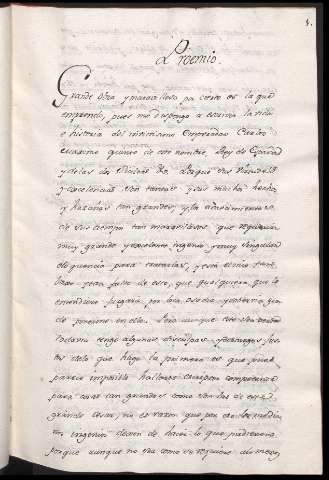 1.
Proemio.
Grande obra y maravillosa por cierto es la que
emprendo, pues me dispongo a escrivir la vida
e historia del invictisimo Emperador Carlos
maximo quinto de este nombre, Rey de España
y de las dos Sicilias &a. Porque sus virtudes
y excelencias son tantas y sus muchos hechos
y hazañas tan grandes, y los acaecimientos
de sus tiempos tan maravillosos que requerian
muy grande y excelente ingenio y muy singular
eloquencia para tratarlas, y en mi
tan falto de eso, que qualquiera que lo
entendiere juzgara por loca osadia y atrevimiento
de ponerme en ello. Pero aunque esto sea verdad
todavia tengo algunas disculpas, y descargos jus-
tos de lo que hago la primera es que pues
parece imposible hallarse escriptor competente
para cosas tan grandes como son las de este
grandes cosas no es razon que por eso los medianos
en ingenio dexen de hacer lo que pudieren
porque aunque no sea como se requiere al menos